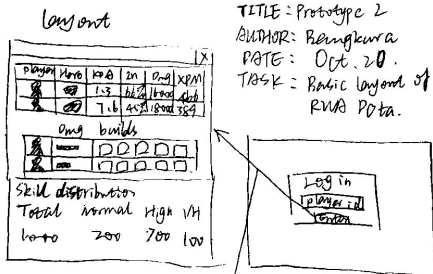 layout
TITLE: Prototype 2
AUTHOR: Bangkura
DATE: Oct. 20.
TASK: Basic layout of
RUA DOta.
X
player Hero KDA Dmg XPM
1.3
7.6 384
Dmg builds
Skill distribution
Total normal High VH
200 700 100
Log in
player id
Enter